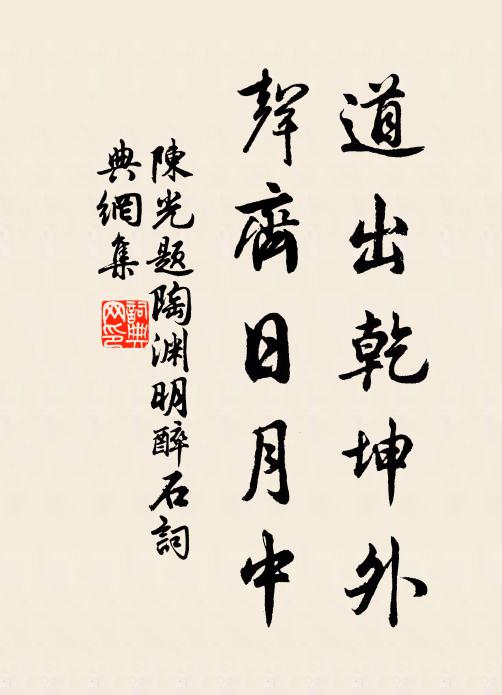 道出乾坤外
聲齊日月中
陳光题陶渊明醉石詞
典網集
詞典
网印